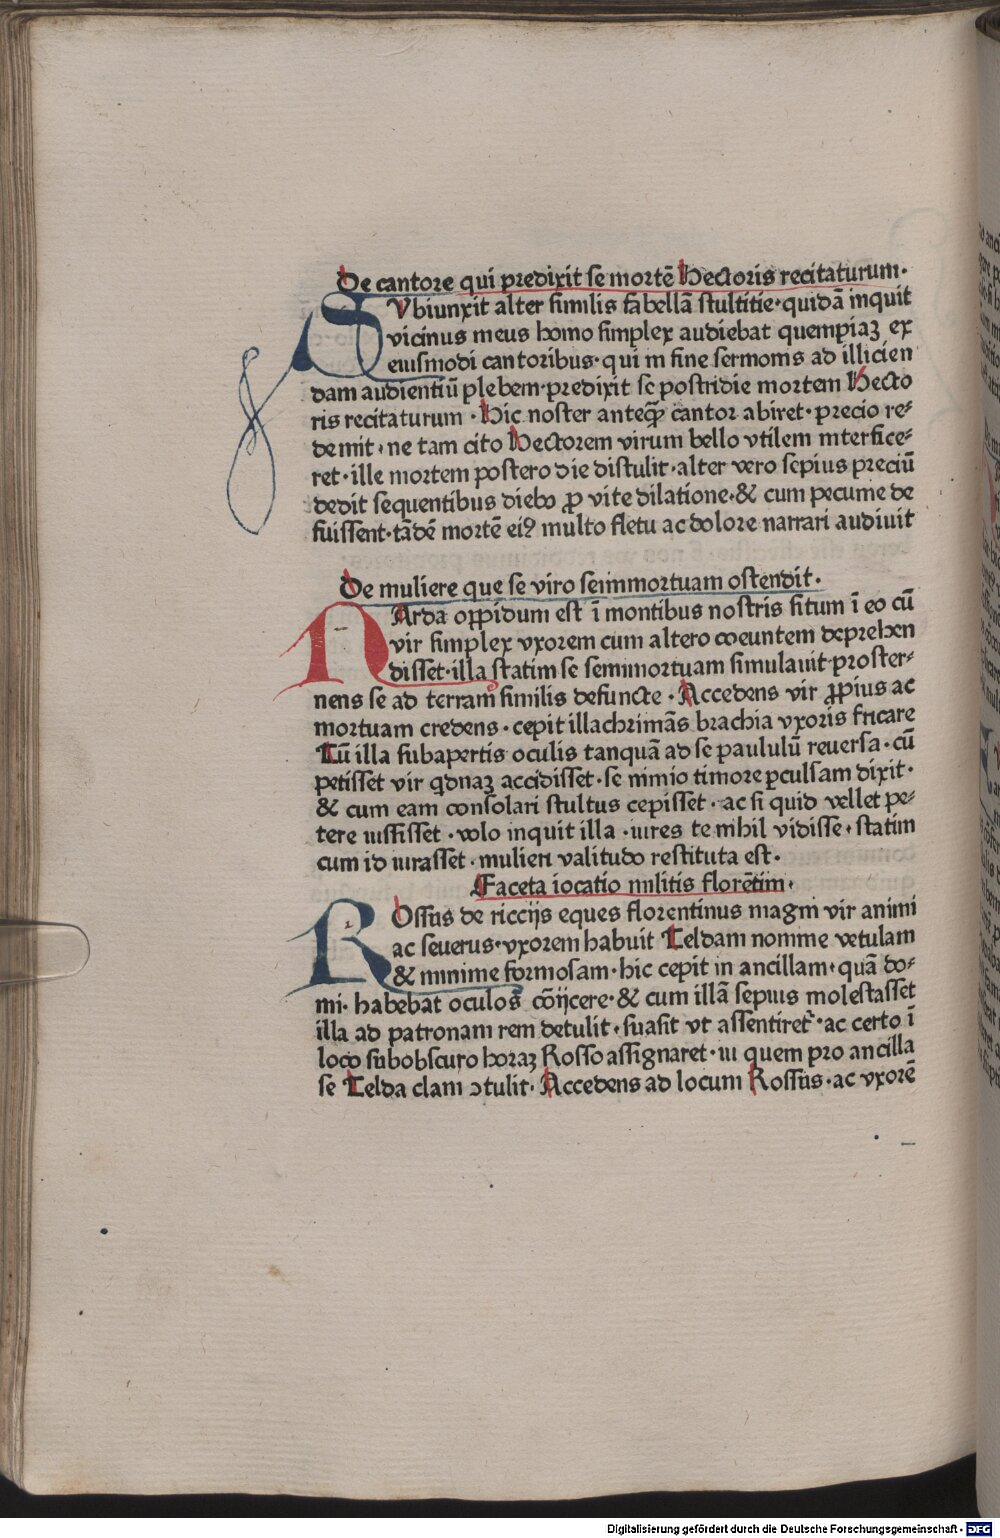 De cantore qui predixit se mortē Hectoris recitaturum·
SVbiunxit alter similis fabellā stultitie·quidā inquit
vicinus meus homo simplex audiebat quempiaꝫ ex
eiusmodi cantoribus·qui in fine sermonis ad illicien
dam audientiū plebem·predixit se postridie mortem Hecto
ris recitaturum · Hic noster anteꝙ̄ cantor abiret·precio re⸗
demit·ne tam cito Hectorem virum bello vtilem interfice⸗
ret·ille mortem postero die distulit·alter vero sepius preciū
dedit sequentibus diebꝰ ꝓ vite dilatione·& cum pecunie de
fuissent·tādē mortē eiꝰ multo fletu ac dolore narrari audiuit
De muliere que se viro seimmortuam ostendit·
NArda oppidum est ī montibus nostris situm ī eo cū
vir simplex vxorem cum altero coeuntem deprehen
disset·illa statim se semimortuam simulauit proster⸗
nens se ad terram similis defuncte · Accedens vir ꝓpius ac
mortuam credens·cepit illachrimās brachia vxoris fricare
Tū illa subapertis oculis tanquā ad se paululū reuersa·cū
petisset vir qdnaꝫ accidisset·se nimio timore ꝑculsam dixit·
& cum eam consolari stultus cepisset·ac si quid vellet pe⸗
tere iussisset·volo inquit illa·iures te nihil vidisse·statim
cum id iurasset·mulieri valitudo restituta est·
Faceta iocatio militis florētini·
ROssus de riccijs eques florentinus magni vir animi
ac seuerus·vxorem habuit Teldam nomine vetulam
& minime formosam·hic cepit in ancillam·quā do⸗
mi·habebat oculos cōijcere·& cum illā sepius molestasset
illa ad patronam rem detulit·suasit vt assentiret᷑·ac certo ī
loco subobscuro horaꝫ Rosso assignaret·in quem pro ancilla
se Telda clam ↄtulit·Accedens ad locum Rossus·ac vxorē
Digitalisierung gefördert durch die Deutsche Forschungsgemeinschaft - DFG